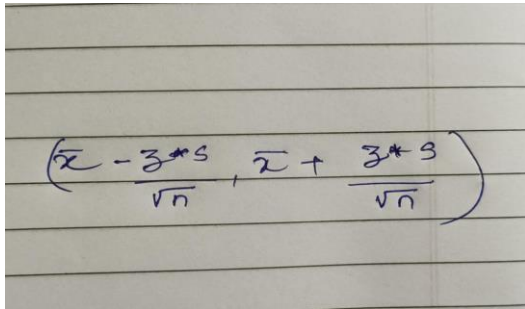 (x̄ - z*s/√n , x̄ + z*s/√n)